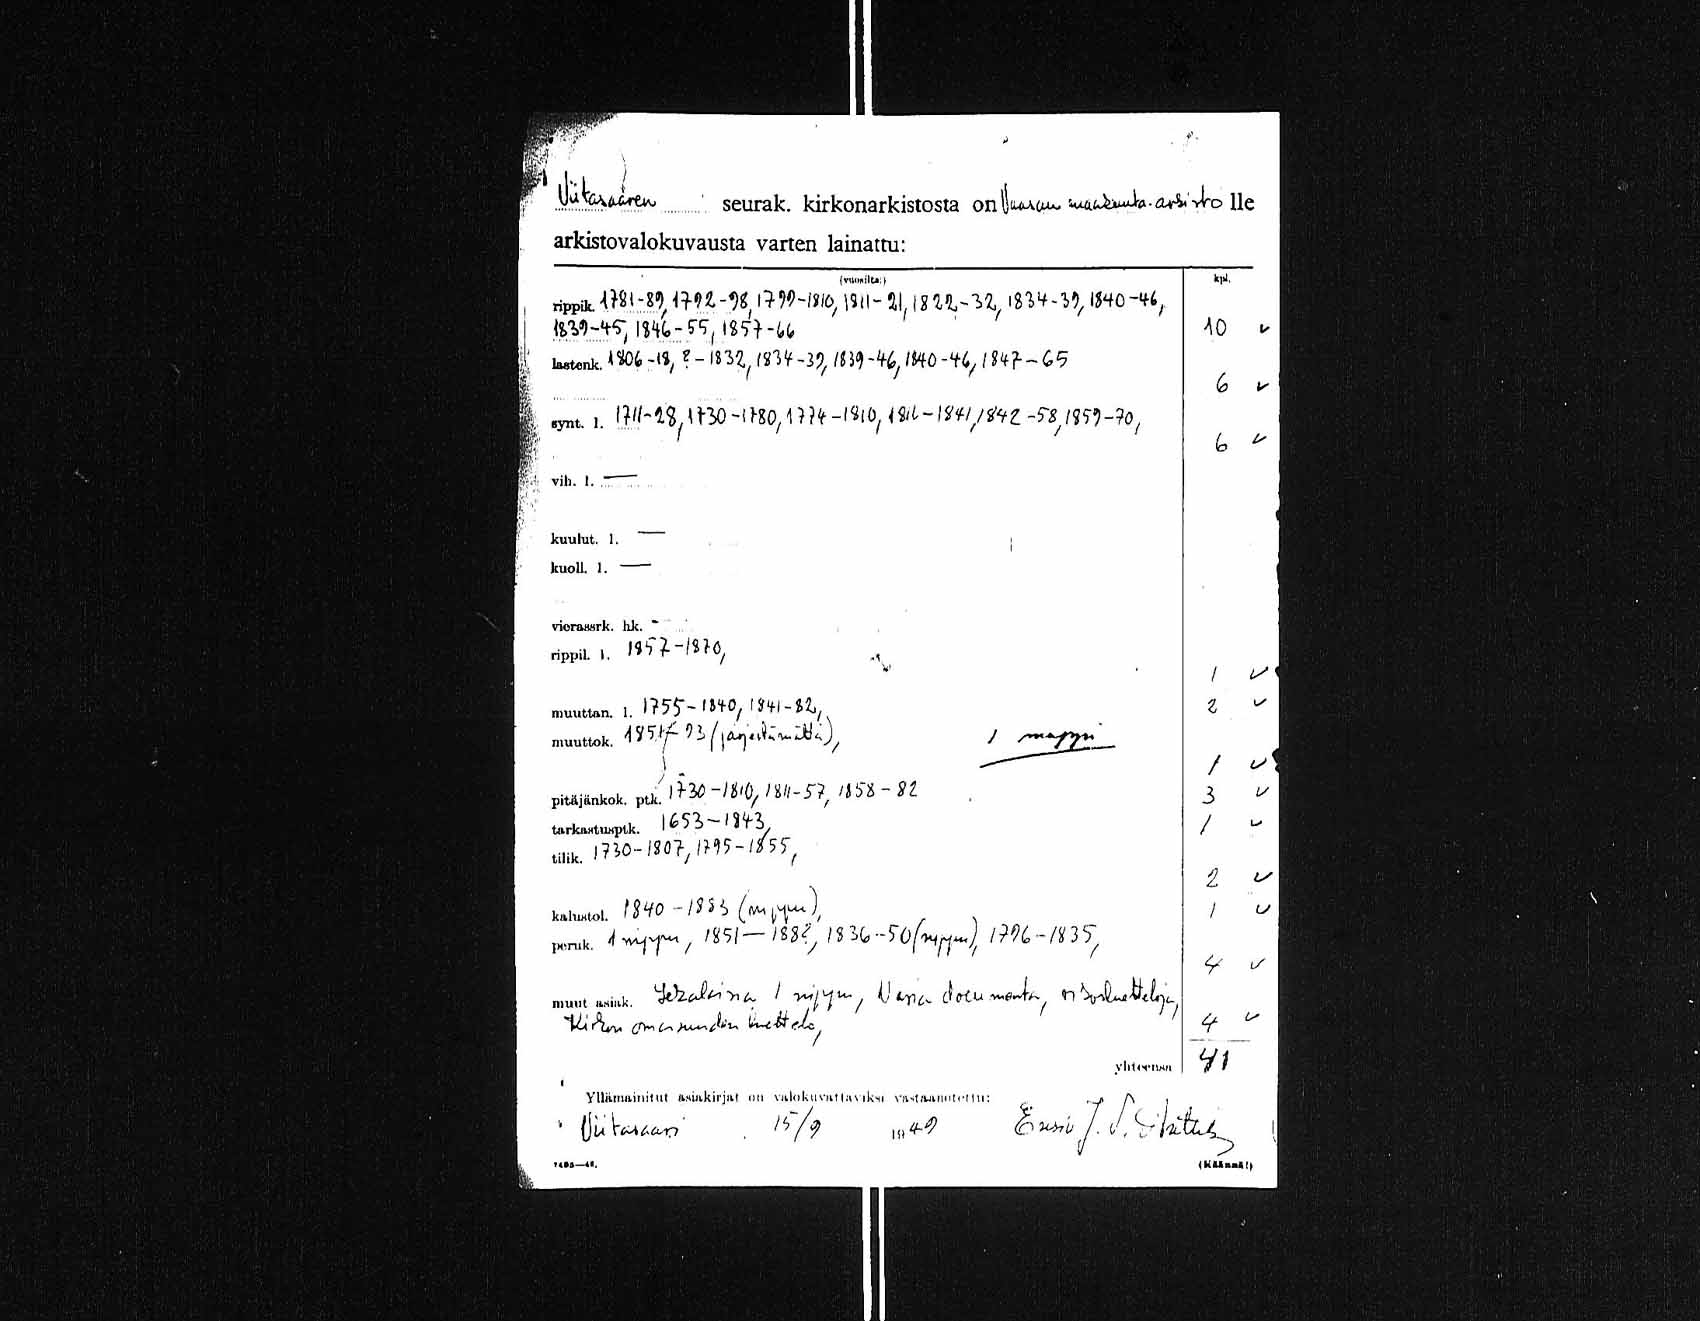 Viitasaaren seurak. kirkonarkistosta on Vaasan maakunta-arkisto lle
arkistovalokuvausta varten lainattu:
(vuosilta:) kpl.
rippik. 1781-89, 1792-98, 1799-1810, 1811-21, 1822-32, 1834-39, 1840-46,
1839-45, 1846-55, 1857-66 10 ✓
lastenk. 1806-18, ?-1832, 1834-39, 1839-46, 1840-46, 1847-65
6 ✓
synt. l. 1711-28, 1730-1780, 1774-1810, 1811-1841, 1842-58, 1859-70,
6 ✓
vih. l. —
kuulut. l. —
kuoll. l. —
vierassrk. hk. -
rippil. l. 1857-1870,
1 ✓
muuttan. l. 1755-1840, 1841-82, 2 ✓
muuttok. 93 (järjestämättä), 1 mappi
1 ✓
pitäjänkok. ptk. 1730-1810, 1811-57, 1858-82 3 ✓
tarkastusptk. 1653-1843, 1 ✓
tilik. 1730-1807, 1795-1855,
2 ✓
kalustol. 1840-1883 (nippu), 1 ✓
peruk. 1 nippu, 1851-188?, 1836-50 (nippu), 1796-1835,
4 ✓
muut asiak. Sekalaisia 1 nippu, Varia documenta,
Kirkon omaisuuden luettelo, 4 ✓
yhteensä 41
Yllämainitut asiakirjat on valokuvattaviksi vastaanotettu:
Viitasaari 15/9 1949 J.
7495—48. (Käännä!)